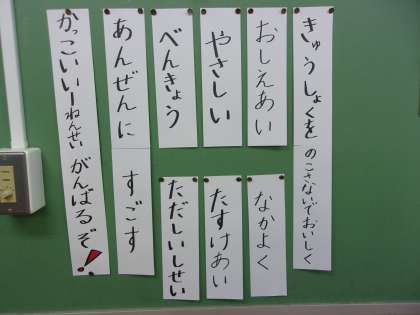 きゅうしょくをのこさないでおいしく
おしえあい
なかよく
やさしい
たすけあい
べんきょう
ただしいしせい
あんぜんにすごす
かっこいい一ねんせいがんばるぞ!